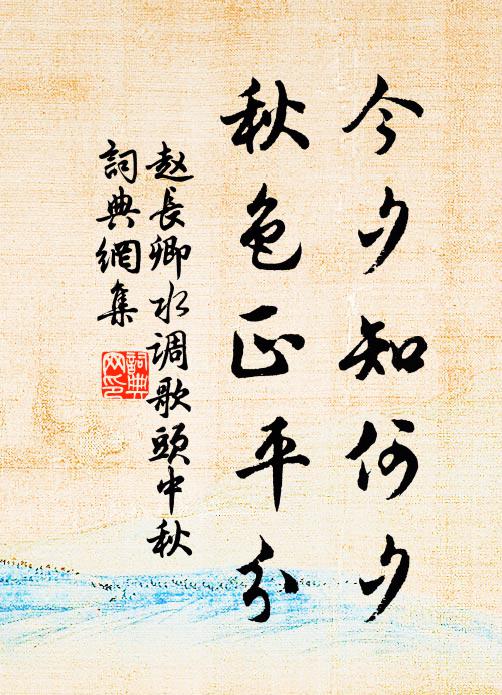 今夕知何夕
秋色正平分
赵長卿水调歌頭中秋
詞典網集
詞典網印